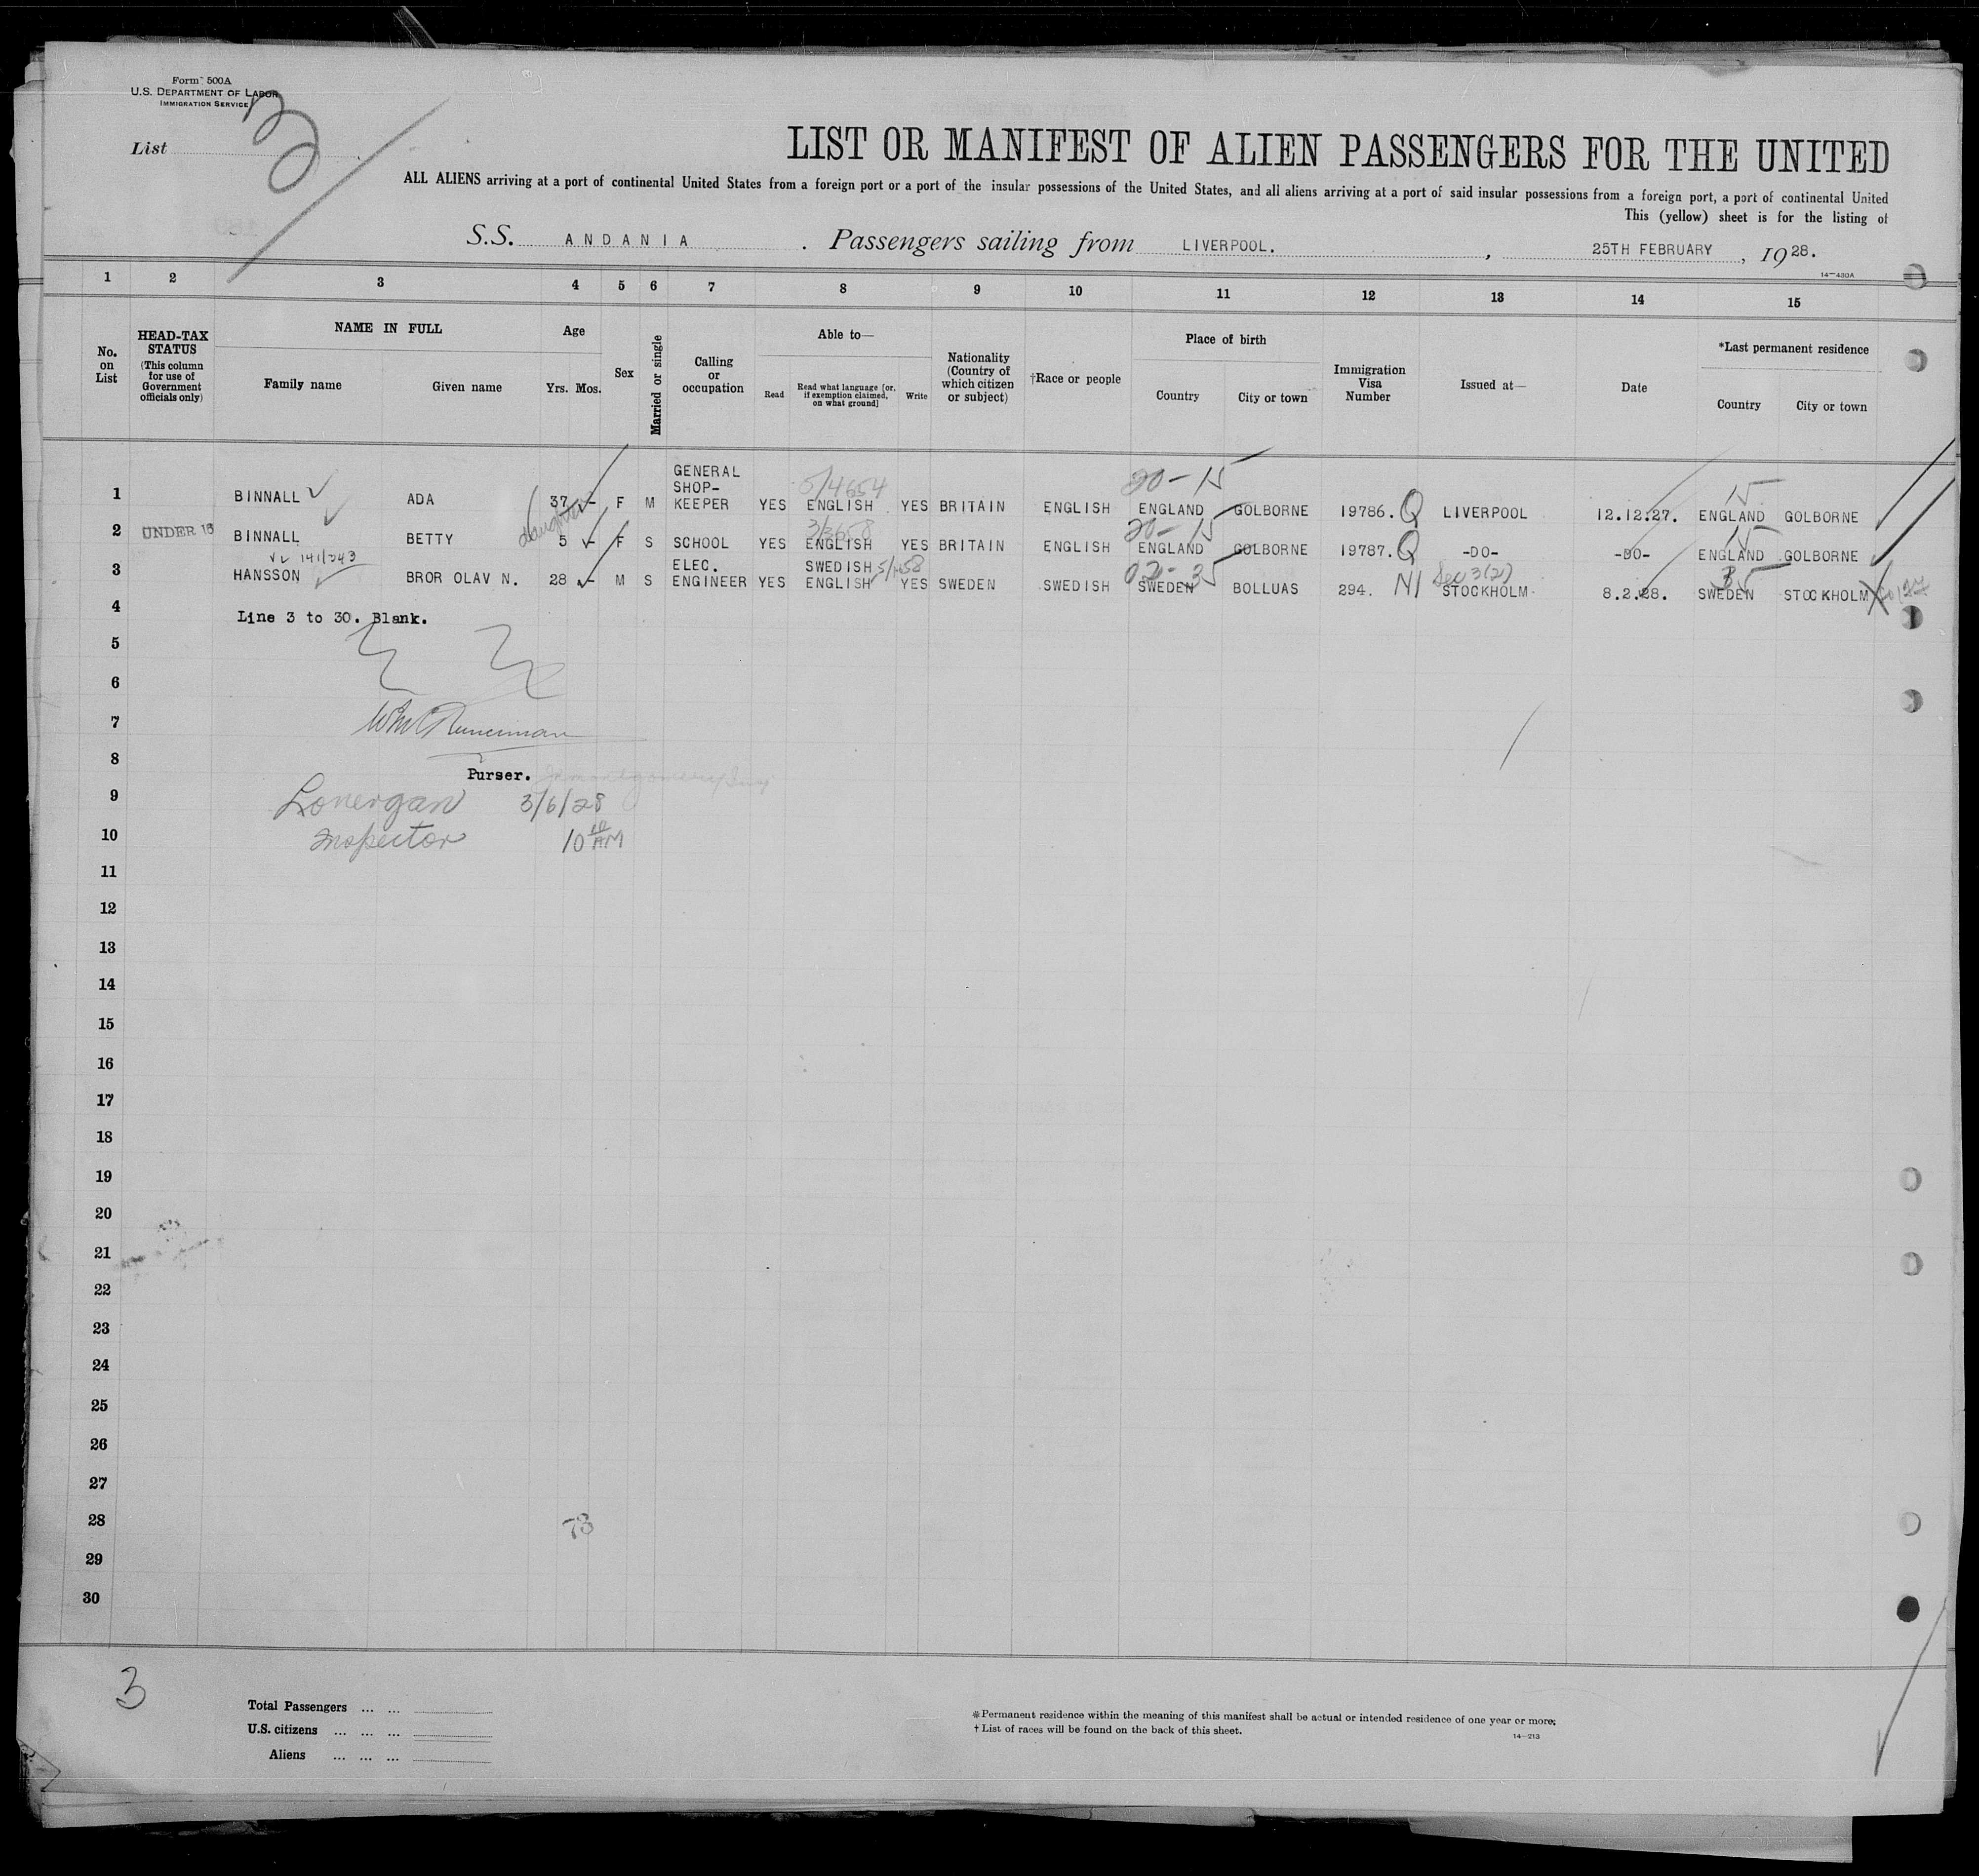 Form 500A
U.S. DEPARTMENT OF LABOR
IMMIGRATION SERVICE
List
LIST OR MANIFEST OF ALIEN PASSENGERS FOR THE UNITED
ALL ALIENS arriving at a port of continental United States from a foreign port or a port of the insular possessions of the United States, and all aliens arriving at a port of said insular possessions from a foreign port, a port of continental United
This (yellow) sheet is for the listing of
S.S. ANDANIA. Passengers sailing from LIVERPOOL., 25TH FEBRUARY, 1928.
14-480A
1 2 3 4 5 6 7 8 9 10 11 12 13 14 15
No. on List
HEAD-TAX STATUS
(This column for use of Government officials only)
NAME IN FULL
Family name Given name
Age
Yrs. Mos.
Sex
Married or single
Calling or occupation
Able to—
Read
Read what language [or, if exemption claimed, on what ground]
Write
Nationality (Country of which citizen or subject)
†Race or people
Place of birth
Country City or town
Immigration Visa Number
Issued at—
Date
*Last permanent residence
Country City or town
5/4654 20-15 15
1 BINNALL ADA 37 - F M GENERAL SHOP-KEEPER YES ENGLISH YES BRITAIN ENGLISH ENGLAND GOLBORNE 19786. Q LIVERPOOL 12.12.27. ENGLAND GOLBORNE
daughter 3/3658 20-15 15
2 UNDER 16 BINNALL BETTY 5 - F S SCHOOL YES ENGLISH YES BRITAIN ENGLISH ENGLAND GOLBORNE 19787. Q -DO- -DO- ENGLAND GOLBORNE
141/243 Sec 3(2)
3 HANSSON BROR OLAV N. 28 - M S ELEC. ENGINEER YES SWEDISH ENGLISH YES SWEDEN SWEDISH SWEDEN BOLLUAS 294. NI STOCKHOLM 8.2.28. SWEDEN STOCKHOLM
4 Line 3 to 30. Blank.
5
6
7
8
Purser.
9 Lonergan 3/6/28
10 Inspector 10 00 AM
11
12
13
14
15
16
17
18
19
20
21
22
23
24
25
26
27
28 73
29
30
3
Total Passengers ... ...
U.S. citizens ... ... ...
Aliens ... ... ...
*Permanent residence within the meaning of this manifest shall be actual or intended residence of one year or more.
† List of races will be found on the back of this sheet.
14-213